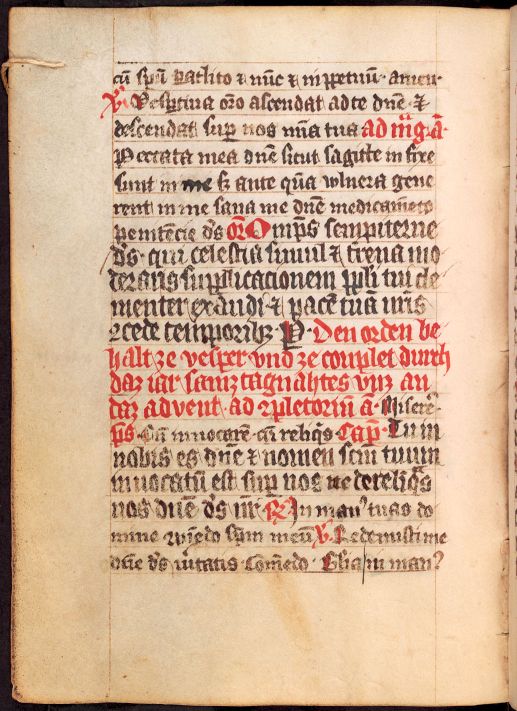 cū spū paclito & nūc & in ppetuū· amen·
℣· Vespertina oro ascendat ad te dne· &
descendat sup nos mīa tua ad mg a͞
Peccata mea dne sicut sagitte in fixe
sunt in me sꝫ ante qua wlnera gene
rent in me sana me dne medicameto
penitēcie ds or͞ Omps sempiterne
ds· qui celestia simul & terrena mo
derans supplicacionem ppli tui cle
menter exaudi· & pacē tuā nris
ↄcede temporibꝫ P· Den orden be
halt ze vesper vnd ze couplet durch
daz iar samztagnahtes vnz an
daz advent· ad ↄpletoriū a͞· Miserē·
ps· Cū invocarē· cū reliqs· Cap͞· Tu in
nobis es dne & nomen scm tuum
invocatū est sup nos ne derelīqs
nos dne ds nr ℟ In man tuas do
mine ↄmēdo spm meū ℣· Redemisti me
dne ds vitatis· Comēdo· Glia in man